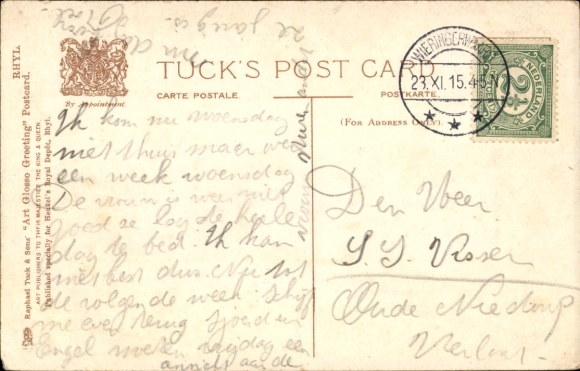 TUCK'S POST CARD
CARTE POSTALE.
POSTKARTE.
(For Address Only).
By Appointment.
RHYL
Raphael Tuck & Sons' "Art Glosso Greeting" Postcard.
ART PUBLISHERS TO THEIR MAJESTIES THE KING & QUEEN.
Published specially for Henkel's Royal Depôt, Rhyl.
WIERINGERWAARD
23.XI.15.4-5N
NEDERLAND
2½
Ik kom nu woensdag
niet thuis maar
een week woensdag
De vrouw is weer niet
goed ze lag de heele
dag te bed. Ik kan
niet best dus. Nu tot
de volgende week. Schrijf
me even terug. Sjoerd en
Engel moeten vrijdag een
ansicht
Den Heer
S. S. Visser
Oude Niedorp
Verlaat.